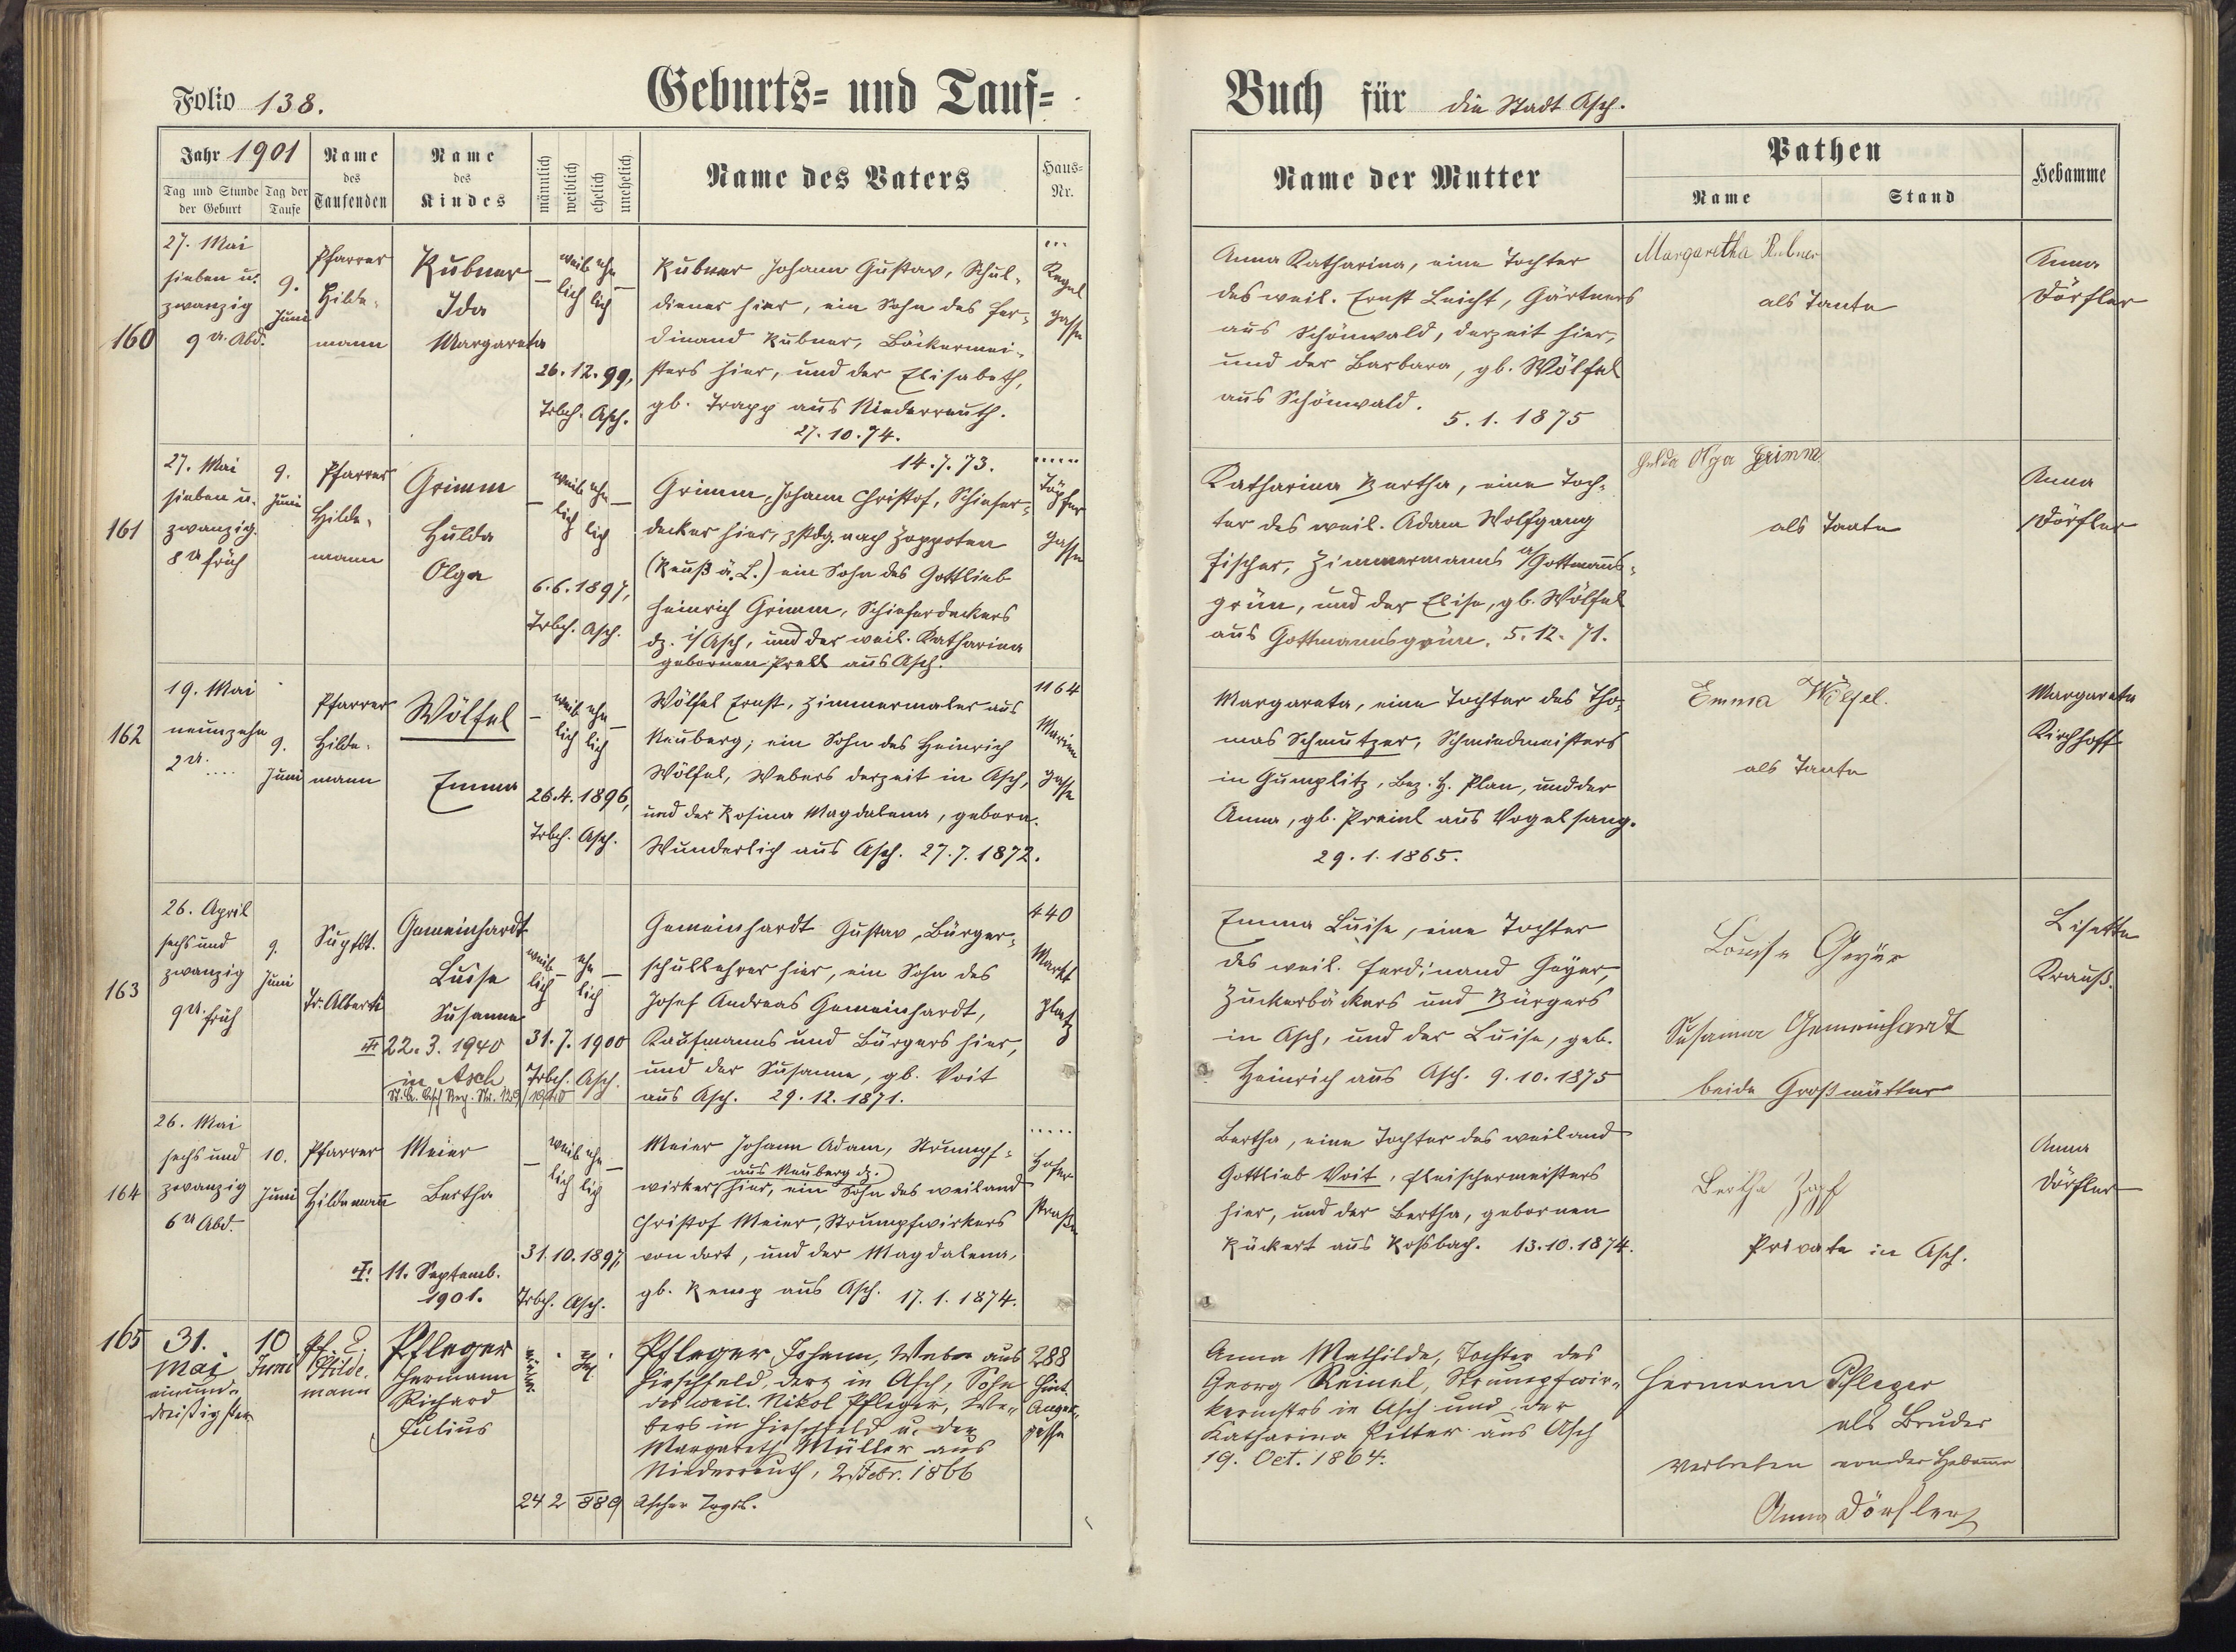 Folio 138.
Geburts= und Tauf=
Buch für die Stadt Asch.
Jahr 1901
Tag und Stunde der Geburt
Tag der Taufe
Name des Taufenden
Name des Kindes
männlich
weiblich
ehelich
unehelich
Name des Vaters
Haus= Nr.
Name der Mutter
Pathen
Name
Stand
Hebamme
160
27. Mai
sieben u.
zwanzig
9 U. Abd.
9.
Juni
Pfarrer
Hilde-
mann
Kubner
Ida
Margareta
— weib ehe —
lich lich
26. 12. 99,
Trbch. Asch.
Kubner Johann Gustav, Schul-
diener hier, ein Sohn des Fer-
dinand Kubner, Bäckermei-
sters hier, und der Elisabeth,
gb. Trapp aus Niederreuth.
27. 10. 74.
...
Kegel
gasse
Anna Katharina, eine Tochter
des weil. Ernst Leicht, Gärtners
aus Schönwald, derzeit hier,
und der Barbara, gb. Wölfel
aus Schönwald.
5. 1. 1875
Margaretha Kubner
als Tante
Anna
Dörfler
161
27. Mai
sieben u.
zwanzig.
8 U früh
9.
Juni
Pfarrer
Hilde-
mann
Grimm
Hulda
Olga
— weib ehe —
lich lich
6. 6. 1897,
Trbch. Asch.
14. 7. 73.
Grimm, Johann Christof, Schiefer-
decker hier, zstdg. nach Zoppoten
(Reuß ä. L.) ein Sohn des Gottlieb
Heinrich Grimm, Schieferdeckers
dz. i/ Asch, und der weil. Katharina
gebornen Prell aus Asch.
.....
Töpfer
gasse
Katharina Bertha, eine Toch-
ter des weil. Adam Wolfgang
Fischer, Zimmermanns a/ Gottmanns-
grün, und der Elise, gb. Wölfel
aus Gottmannsgrün. 5. 12. 71.
Hulda Olga Grimm
als Tante
Anna
Dörfler
162
19. Mai
neunzehn
2 U. ....
9.
Juni
Pfarrer
Hilde-
mann
Wölfel
Emma
— weib ehe —
lich lich
26. 4. 1896,
Trbch. Asch.
Wölfel Ernst, Zimmermaler aus
Neuberg; ein Sohn des Heinrich
Wölfel, Webers derzeit in Asch,
und der Rosina Magdalena, geborn.
Wunderlich aus Asch. 27. 7. 1872.
1164
Marien
gasse
Margareta, eine Tochter des Tho-
mas Schmutzer, Schmiedmeisters
in Gumplitz, Bez. H. Plan, und der
Anna, gb. Preinl aus Vogelsang.
29. 1. 1865.
Emma Wölfel.
als Tante
Margareta
Kirchhoff
163
26. April
sechs und
zwanzig
9 U. früh
9.
Juni
Suptdt.
Tr. Alberti
Gemeinhardt
Luise
Susanna
22. 3. 1940
in Asch
weib— ehe —
lich lich
31. 7. 1900
Trbch. Asch.
Gemeinhardt Gustav, Bürger-
schullehrer hier, ein Sohn des
Josef Andreas Gemeinhardt,
Kaufmanns und Bürgers hier,
und der Susanna, gb. Voit
aus Asch. 29. 12. 1871.
440
Markt
platz
Emma Luise, eine Tochter
des weil. Ferdinand Geyer,
Zuckerbäckers und Bürgers
in Asch, und der Luise, geb.
Heinrich aus Asch. 9. 10. 1875
Louise Geyer
Susanna Gemeinhardt
beide Großmütter
Lisette
Krauß.
164
26. Mai
sechs und
zwanzig
6 U Abd.
10.
Juni
Pfarrer
Hildemann
Meier
Bertha
11. Septemb.
1901.
— weib ehe —
lich lich
31. 10. 1897,
Trbch. Asch.
Meier Johann Adam, Strumpf-
aus Neuberg dz.
wirker hier, ein Sohn des weiland
Christof Meier, Strumpfwirkers
von dort, und der Magdalena,
gb. Kemp aus Asch. 17. 1. 1874.
.....
Hofer
straße
Bertha, eine Tochter des weiland
Gottlieb Voit, Fleischermeisters
hier, und der Bertha, gebornen
Rückert aus Roßbach. 13. 10. 1874.
Bertha Zapf
Private in Asch.
Anna
Dörfler
165
31.
Mai
einund-
dreißigster
10
Juni
Pf.
Hilde-
mann
Pfleger
Hermann
Richard
Julius
24 2 889
Pfleger Johann, Weber aus
Hirschfeld, derz in Asch, Sohn
des weil. Nikol Pfleger, We-
bers in Hirschfeld u. der
Margareth Müller aus
Niederreuth, 2. Febr. 1866
Ascher
288
Hint.
Anger-
gasse
Anna Mathilde, Tochter des
Georg Reinel, Strumpfwir-
kermstrs in Asch und der
Katharina Ritter aus Asch
19. Oct. 1864.
Hermann Pfleger
als Bruder
vertreten von der Hebamme
Anna Dörfler